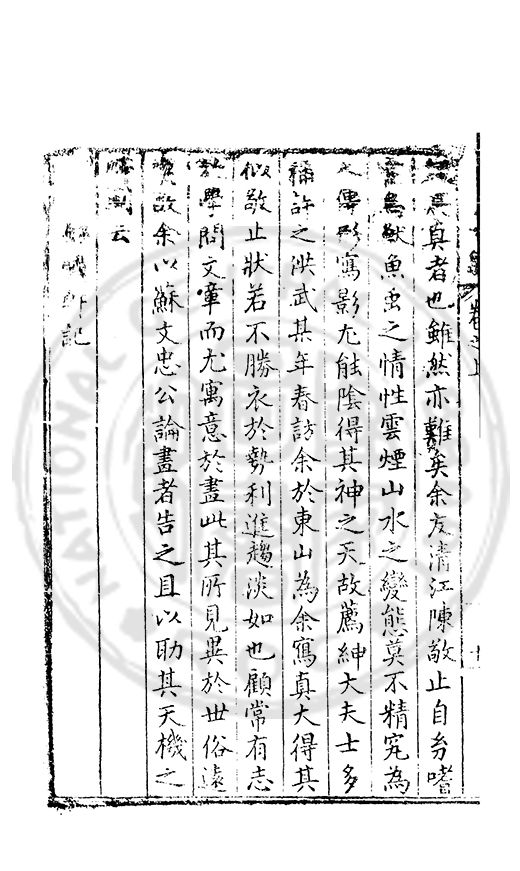 真者也雖然亦難矣余友清江陳敬止自㓜嗜
鳥獸魚虫之情性雲煙山水之變態莫不精究為
傳形寫影尤能陰得其神之天故薦紳大夫士多
稱許之洪武某年春訪余於東山為余寫真大得其
似敬止狀若不勝衣於勢利進趨淡如也顧常有志
學問文章而尤寓意於畫此其所見異於世俗遠
故余以蘇文忠公論畫者告之且以助其天機之
云
記
卷之上
NATIONAL C